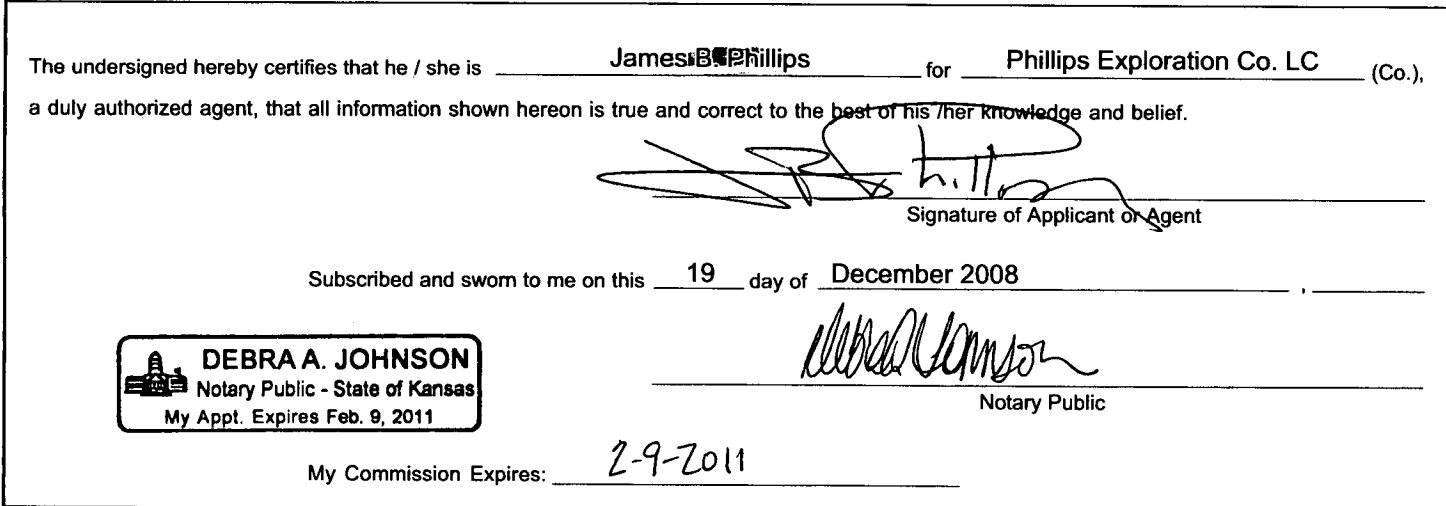 The undersigned hereby certifies that he / she is James B. Phillips for Phillips Exploration Co. LC (Co.),
a duly authorized agent, that all information shown hereon is true and correct to the best of his /her knowledge and belief.
J B Phillips
Signature of Applicant or Agent
Subscribed and sworn to me on this 19 day of December 2008 ,
Debra A Johnson
DEBRA A. JOHNSON
Notary Public - State of Kansas
My Appt. Expires Feb. 9, 2011
Notary Public
My Commission Expires: 2-9-2011